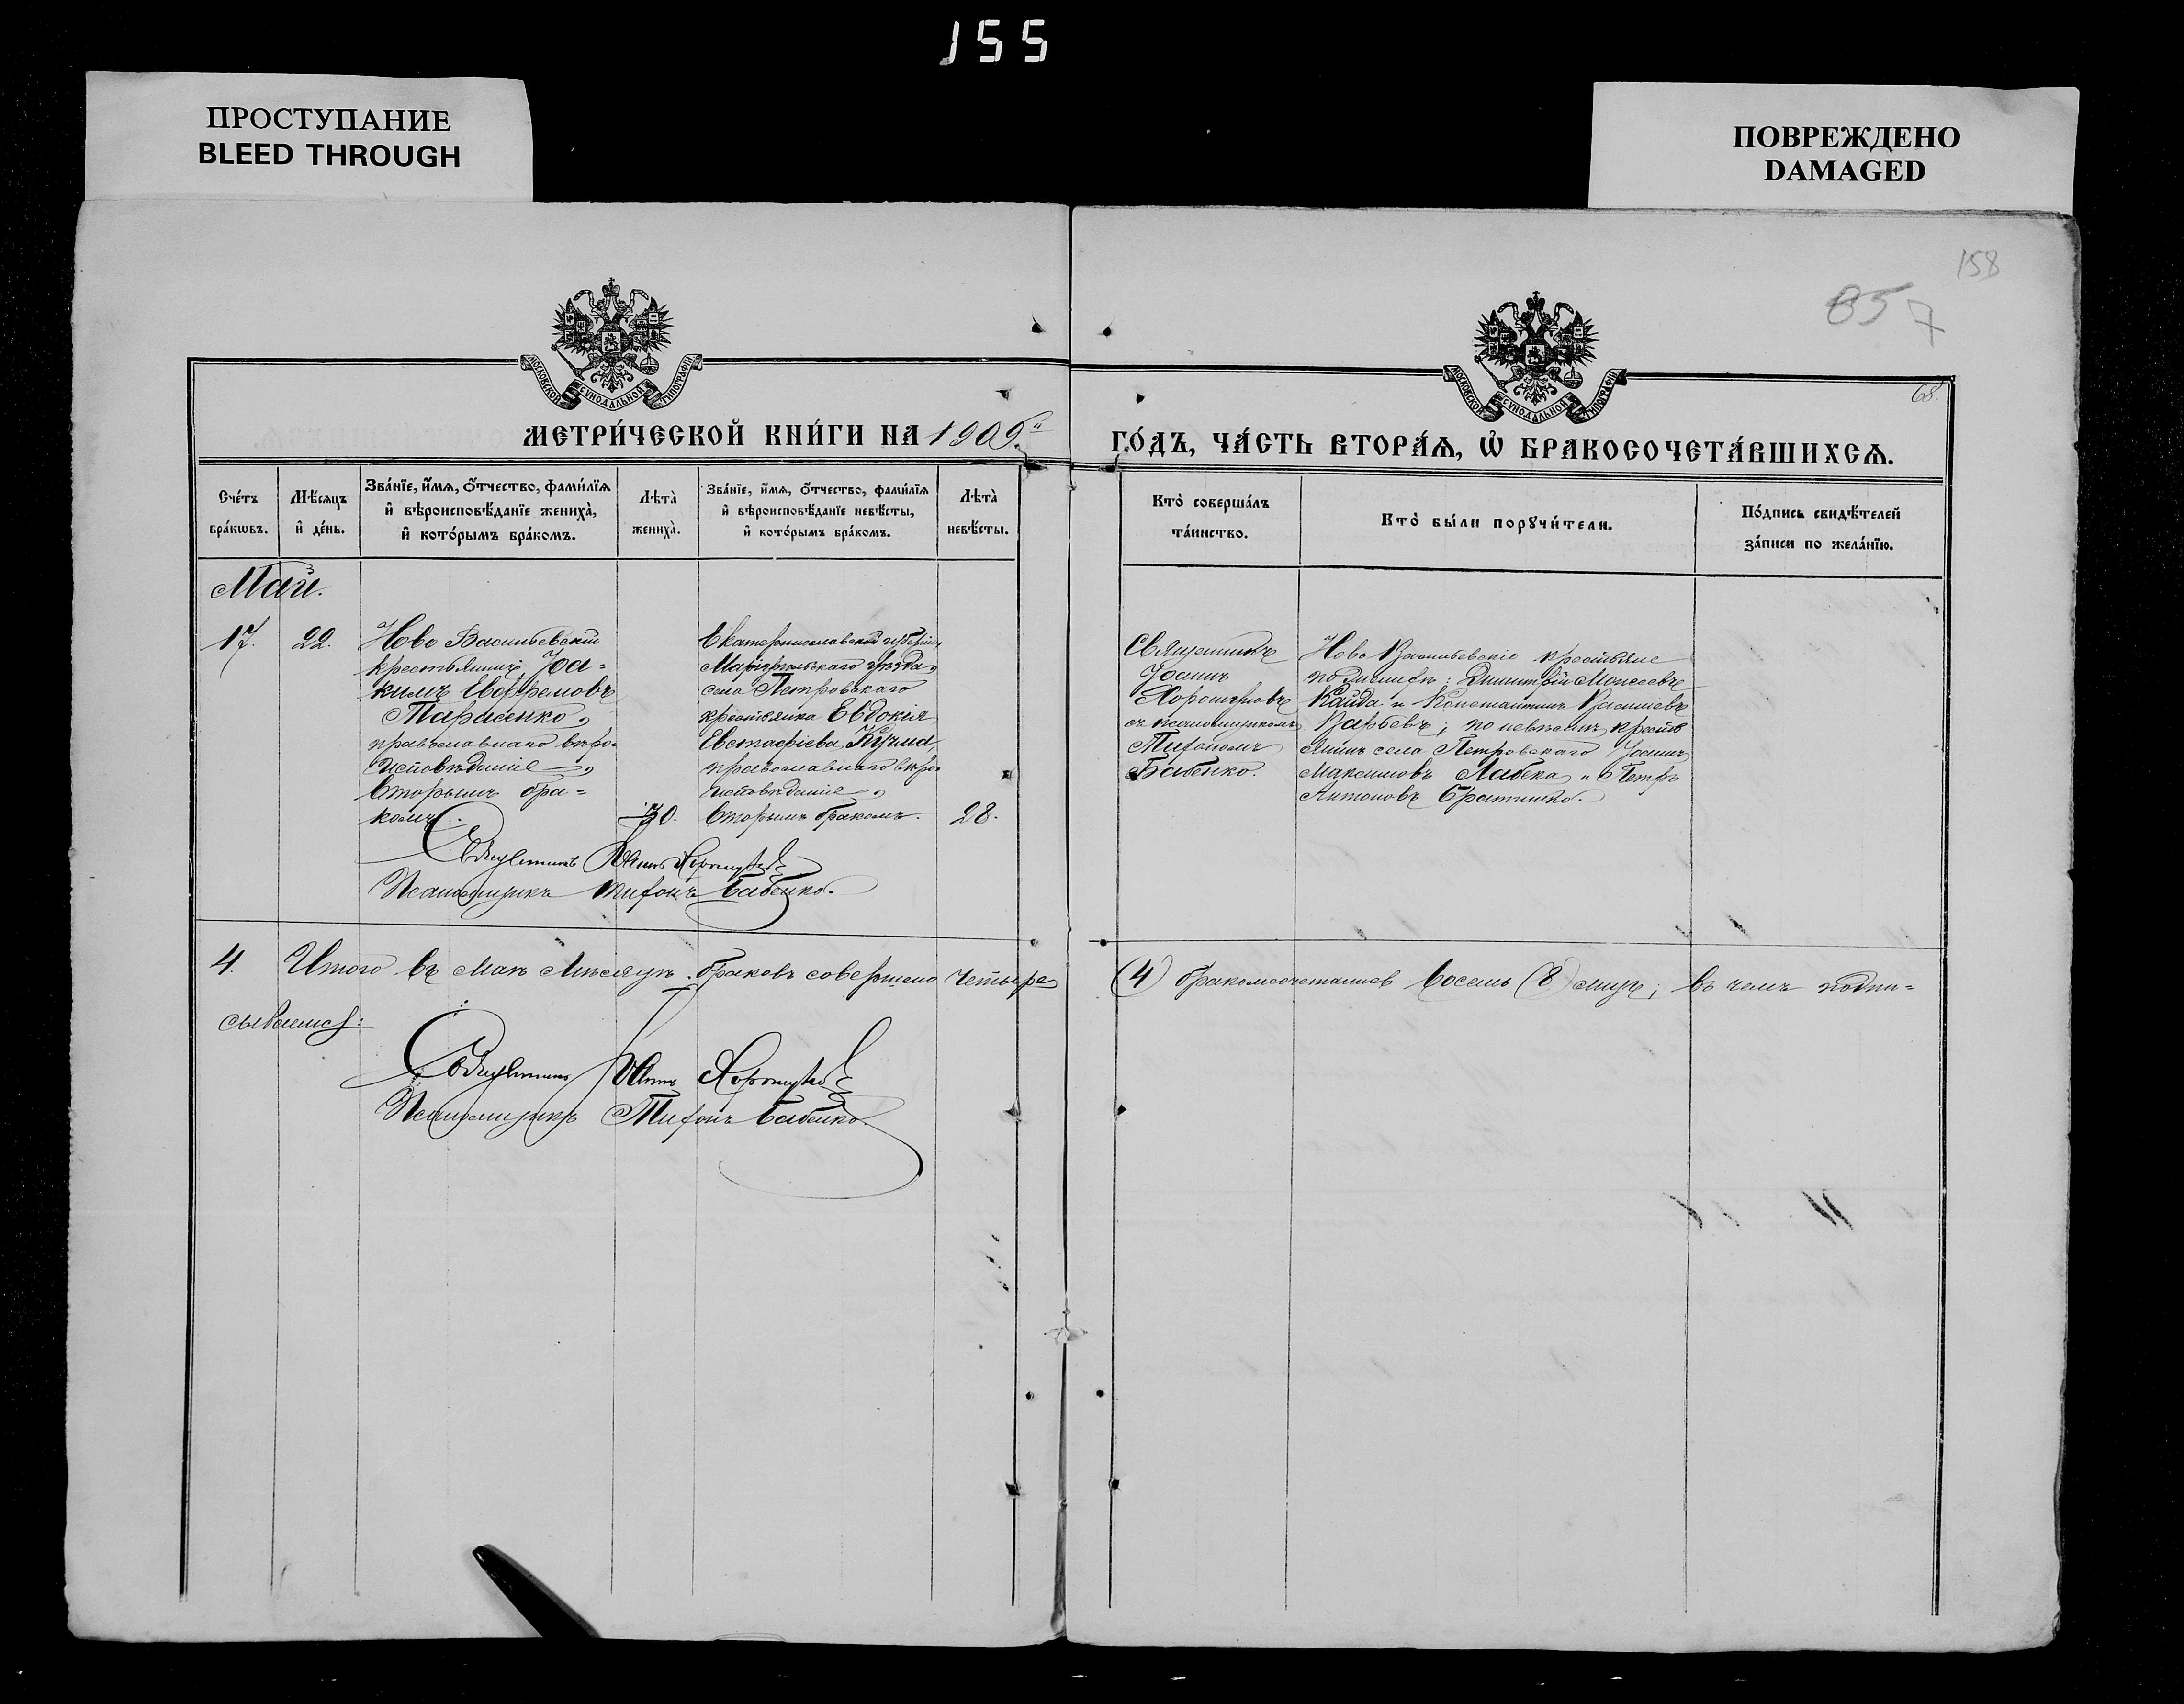 155
ПРОСТУПАНИЕ
BLEED THROUGH
ПОВРЕЖДЕНО
DAMAGED
158
68.
МОСКОВСКОЙ СѴНОДАЛЬНОЙ ТИПОГРАФІИ
МОСКОВСКОЙ СѴНОДАЛЬНОЙ ТИПОГРАФІИ
МЕТРИ́ЧЕСКОЙ КНИ́ГИ НА 1909
ГО́ДЪ, ЧА́СТЬ ВТОРА́Ѧ, Ѡ҆ БРАКОСОЧЕТА́ВШИХСѦ.
Сче́тъ
бра́кωвъ.
Мѣ́сяцъ
и҆ де́нь.
Зва́нїе, и҆́мѧ, о҆́тчество, фами́лїѧ
и҆ вѣроисповѣ́данїе жениха̀,
и҆ кото́рымъ бра́комъ.
Лѣта̀
жениха̀.
Зва́нїе, и҆́мѧ, о҆́тчество, фами́лїѧ
и҆ вѣроисповѣ́данїе невѣ́сты,
и҆ кото́рымъ бра́комъ.
Лѣта̀
невѣ́сты.
Кто̀ соверша́лъ
та́инство.
Кто̀ бы́ли порꙋчи́тели.
По́дпись свидѣ́телей
за́писи по жела́нїю.
Май.
17.
22.
Ново Васильевскій
крестьянинъ Іоа=
кимъ Евфремовъ
Тарасенко,
православнаго вѣро-
исповѣданія,
вторымъ бра=
комъ.
70.
Екатеринославской губерніи,
Маріупольскаго уѣзда,
села Петровскаго
крестьянка Евдокія
Евстафіева Кузма,
православнаго вѣро-
исповѣданія,
вторымъ бракомъ.
28.
Священникъ
Іоаннъ
Хорошуновъ
съ псаломщикомъ
Тифономъ
Бабенко.
Ново Васильевскіе крестьяне
по женихѣ: Димитрій Моисеевъ
Кайда и Константинъ Васильевъ
по невѣстѣ крест
янинъ села Петровскаго Іоаннъ
Максимовъ Лабека и Петръ
Антоновъ
Священникъ Іоаннъ
Псаломщикъ Тифонъ Бабенко.
4. Итого въ Маѣ мѣсяцѣ браковъ совершено четыре
(4) бракомсочетанно восемь (8) лицъ; въ чемъ подпи=
сываемся:
Священникъ Іоаннъ
Псаломщикъ Тифонъ Бабенко.